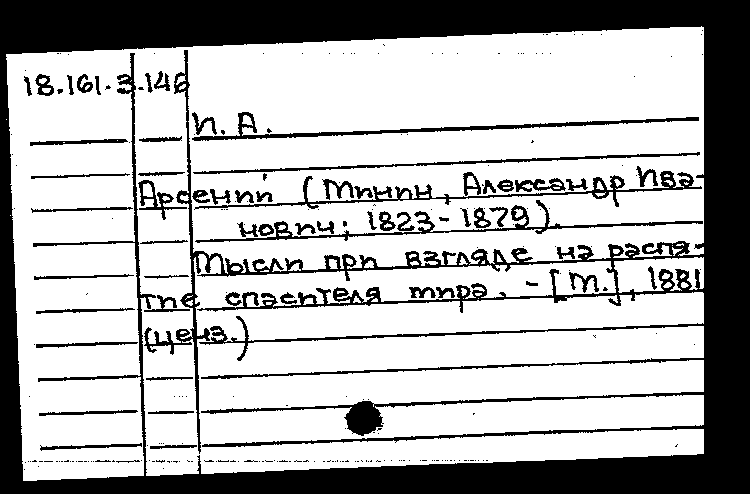 18.161.3.146
И. А.
Арсений (Минин, Александр Ива-
нович; 1823-1879).
Мысли при взгляде на распя-
тие спасителя мира. - [М.], 1881
(ценз.)